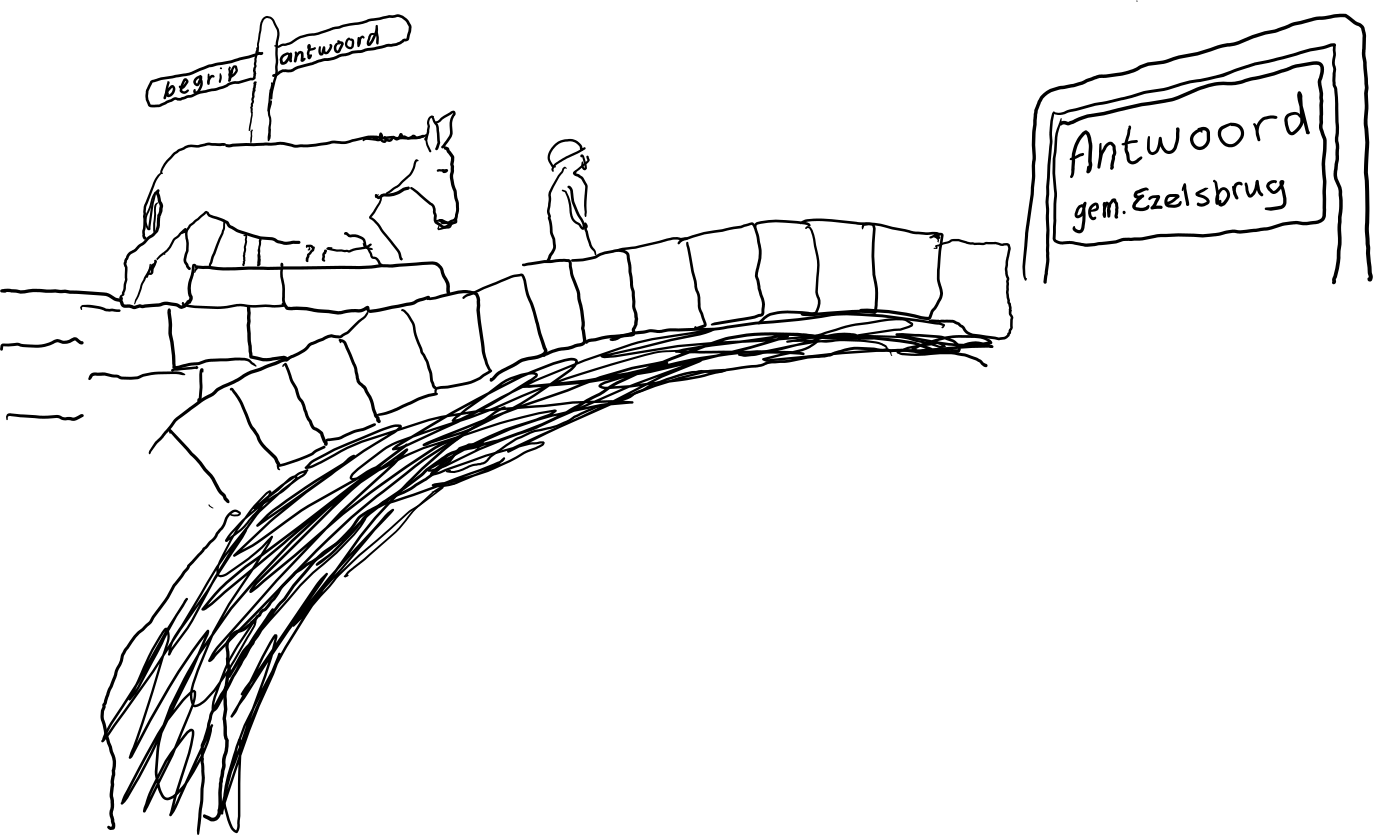 begrip
antwoord
Antwoord
gem. Ezelsbrug